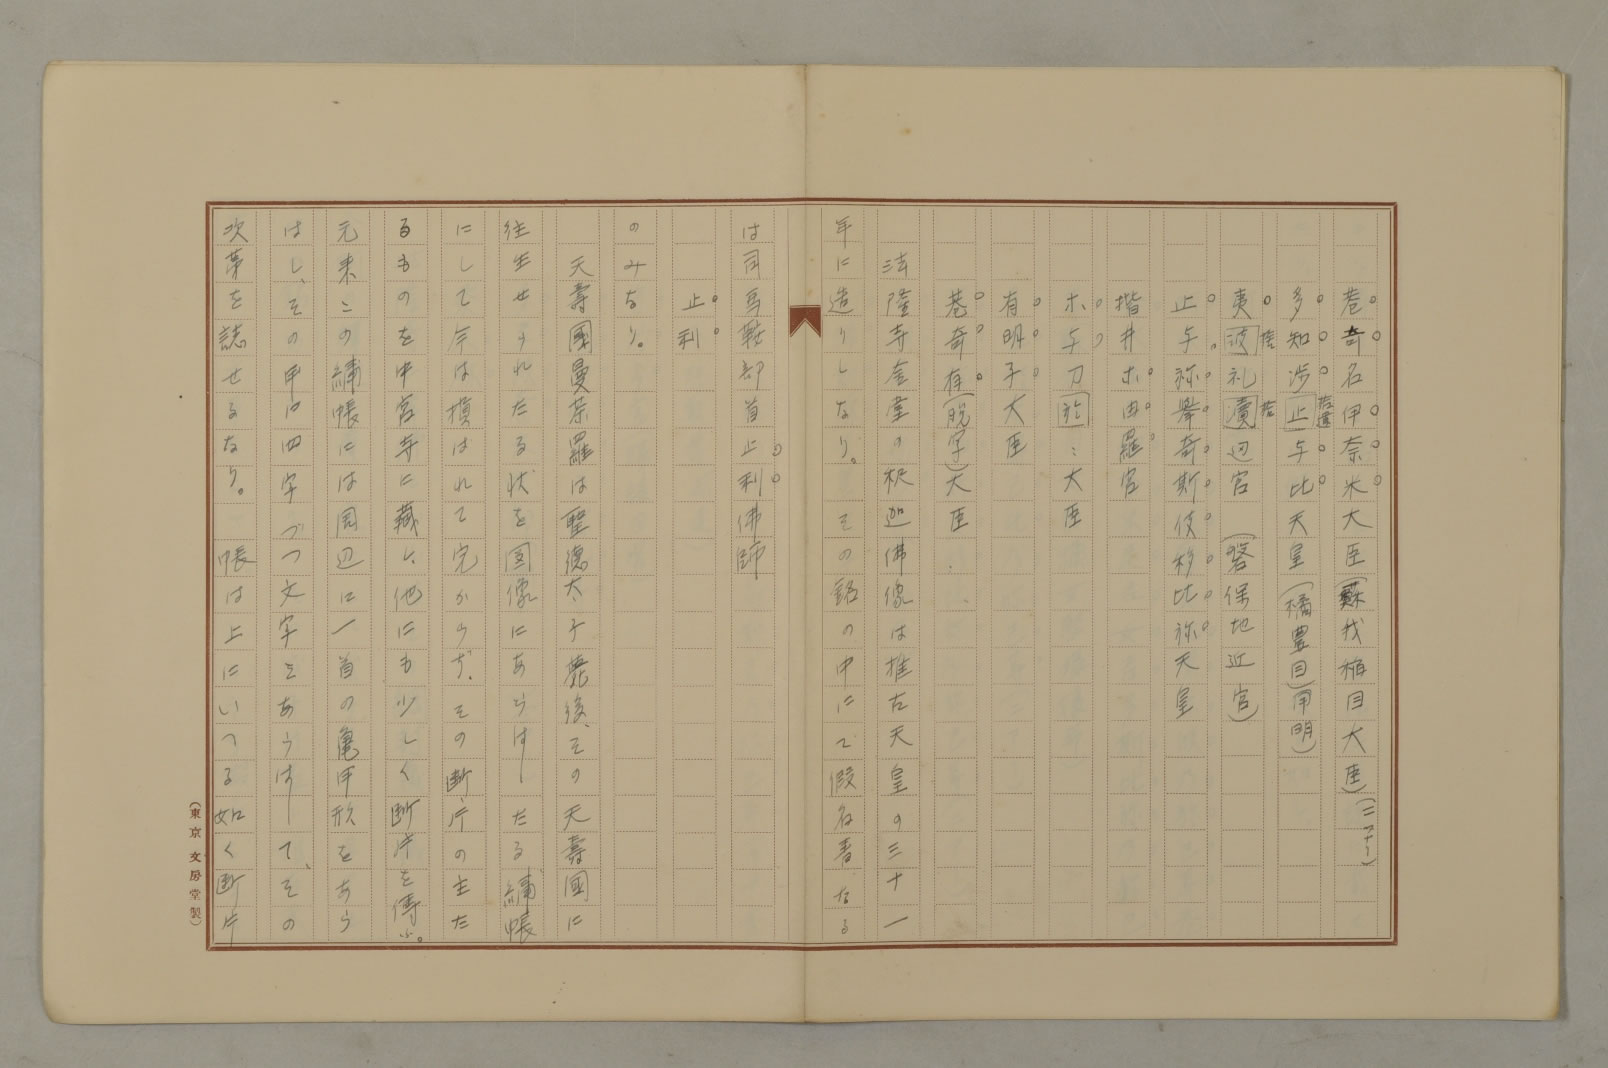 巷奇名伊奈米大臣(蘇我稲目大臣)(三字)
多知渉止与比天皇(橘豊日)(用明)
夷波礼瀆辺宮　(磐保地近宮)
止与祢擧奇斯伎移比祢天皇
楷井ホ由羅宮
ホ与刀於ミ大臣
有明子大臣
巷奇有(脱字)大臣
法隆寺金堂の釈迦佛像は推古天皇の三十一
年に造りしなり。その銘の中にて假名書なる
は司馬鞍部首止利佛師
止利
のみなり。
天壽國曼荼羅は聖徳太子薨後、その天壽國に
往生せられたる状を図像にあらはしたる繍帳
にして今は損はれて完からず、その断片の主た
るものを中宮寺に藏し、他にも少しく断片を傳ふ。
元来この繍帳には周辺に一首の亀甲形をあら
はし、その甲は四字づつ文字をあらはして、その
次第を誌せるなり。　帳は上にいへる如く断片
(東京 文房堂製)